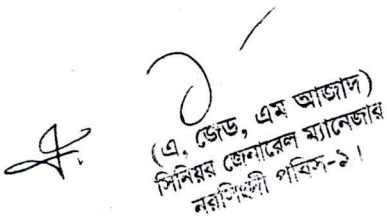 (এ, জেড, এম আজাদ)
সিনিয়র জেনারেল ম্যানেজার
নরসিংদী পবিস-১।